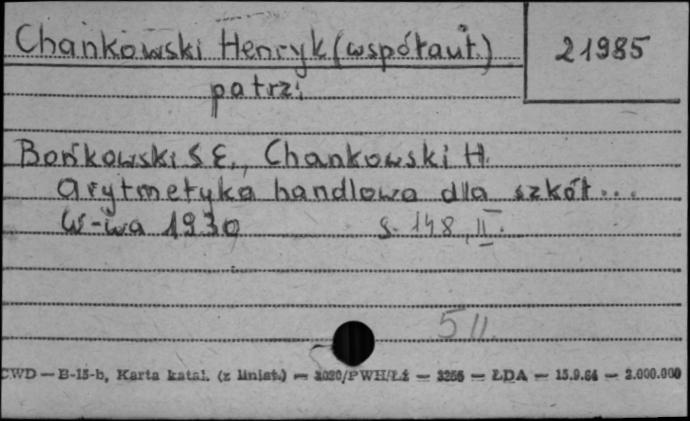 Chankowski Henryk (współaut.) 21985
patrz:
Bońkowski S E., Chankowski H.
Arytmetyka handlowa dla szkół...
W-wa 1930 s. 148, II.
511.
CWD — B-15-b, Karta katal. (z liniat.) — 3020/PWH/Łź — 3256 — ŁDA — 15.9.64 — 2.000.000